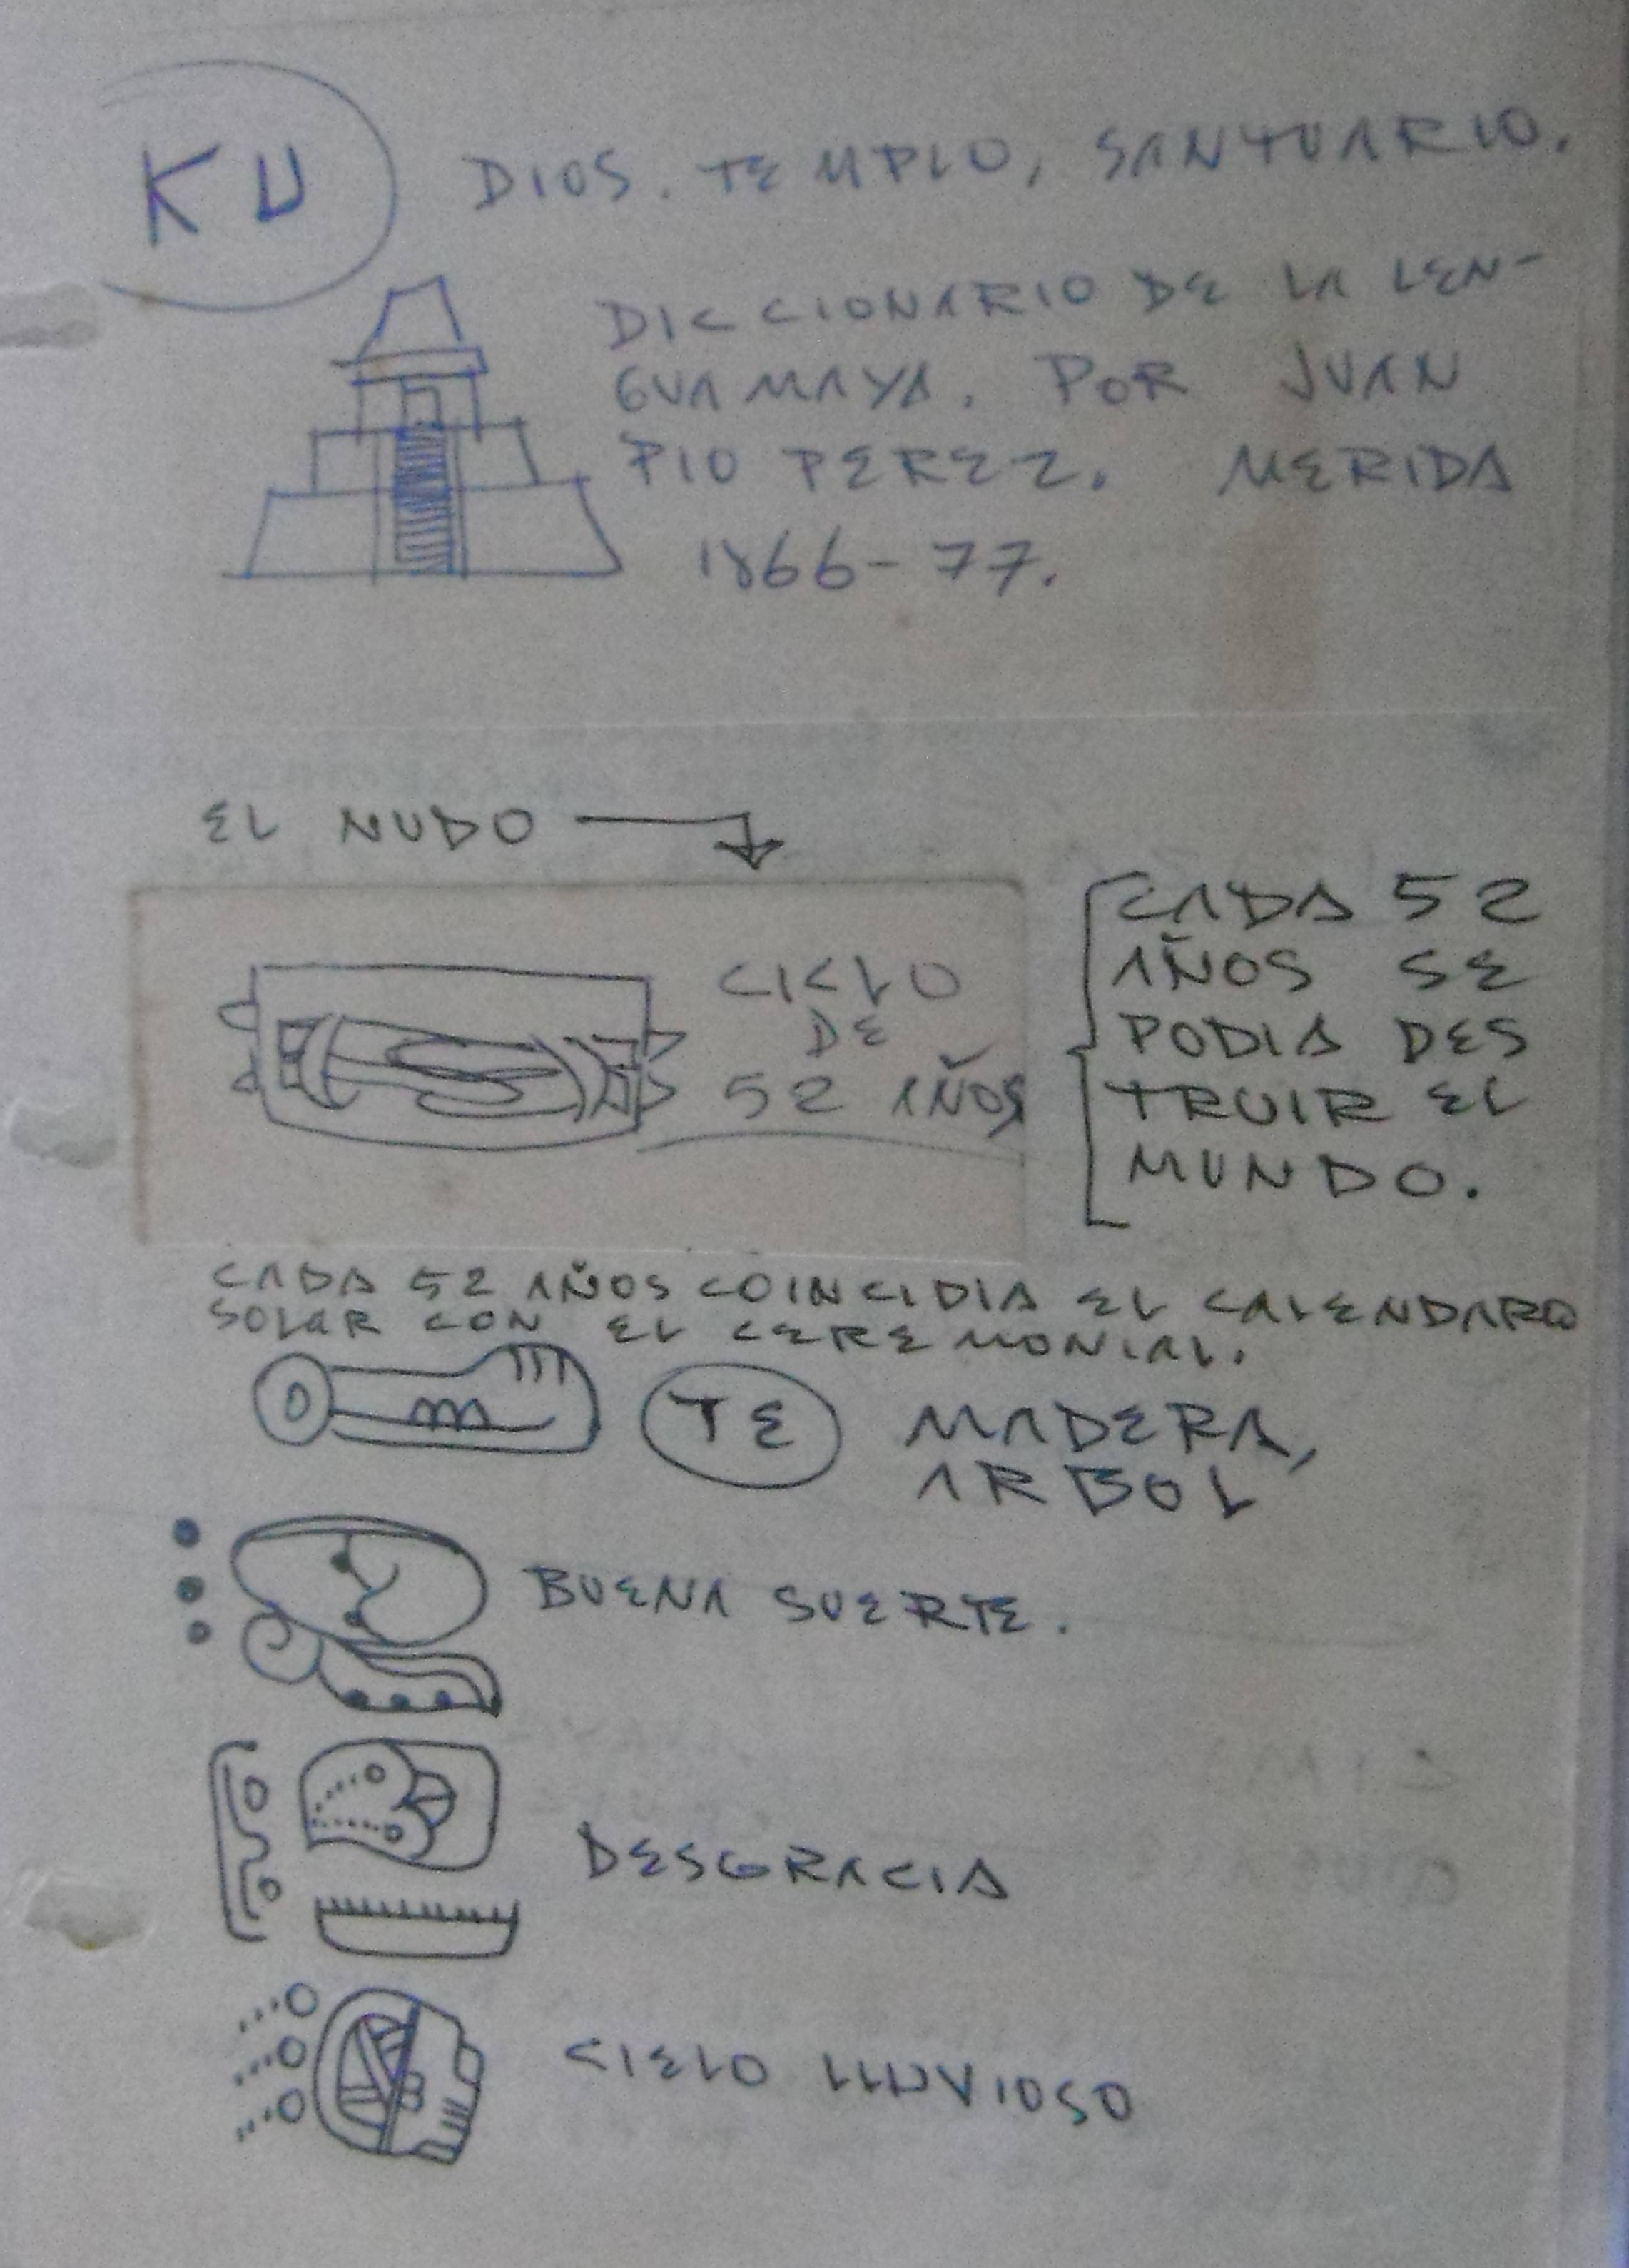 KU DIOS. TEMPLO, SANTUARIO.
DICCIONARIO DE LA LEN-
GUA MAYA. POR JUAN
PIO PEREZ. MERIDA
1866-77.
EL NUDO
CICLO
DE
52 AÑOS
CADA 52
AÑOS SE
PODIA DES
TRUIR EL
MUNDO.
CADA 52 AÑOS COINCIDIA EL CALENDARO
SOLAR CON EL CEREMONIAL.
TE MADERA,
ARBOL
BUENA SUERTE.
DESGRACIA
CIELO LLUVIOSO